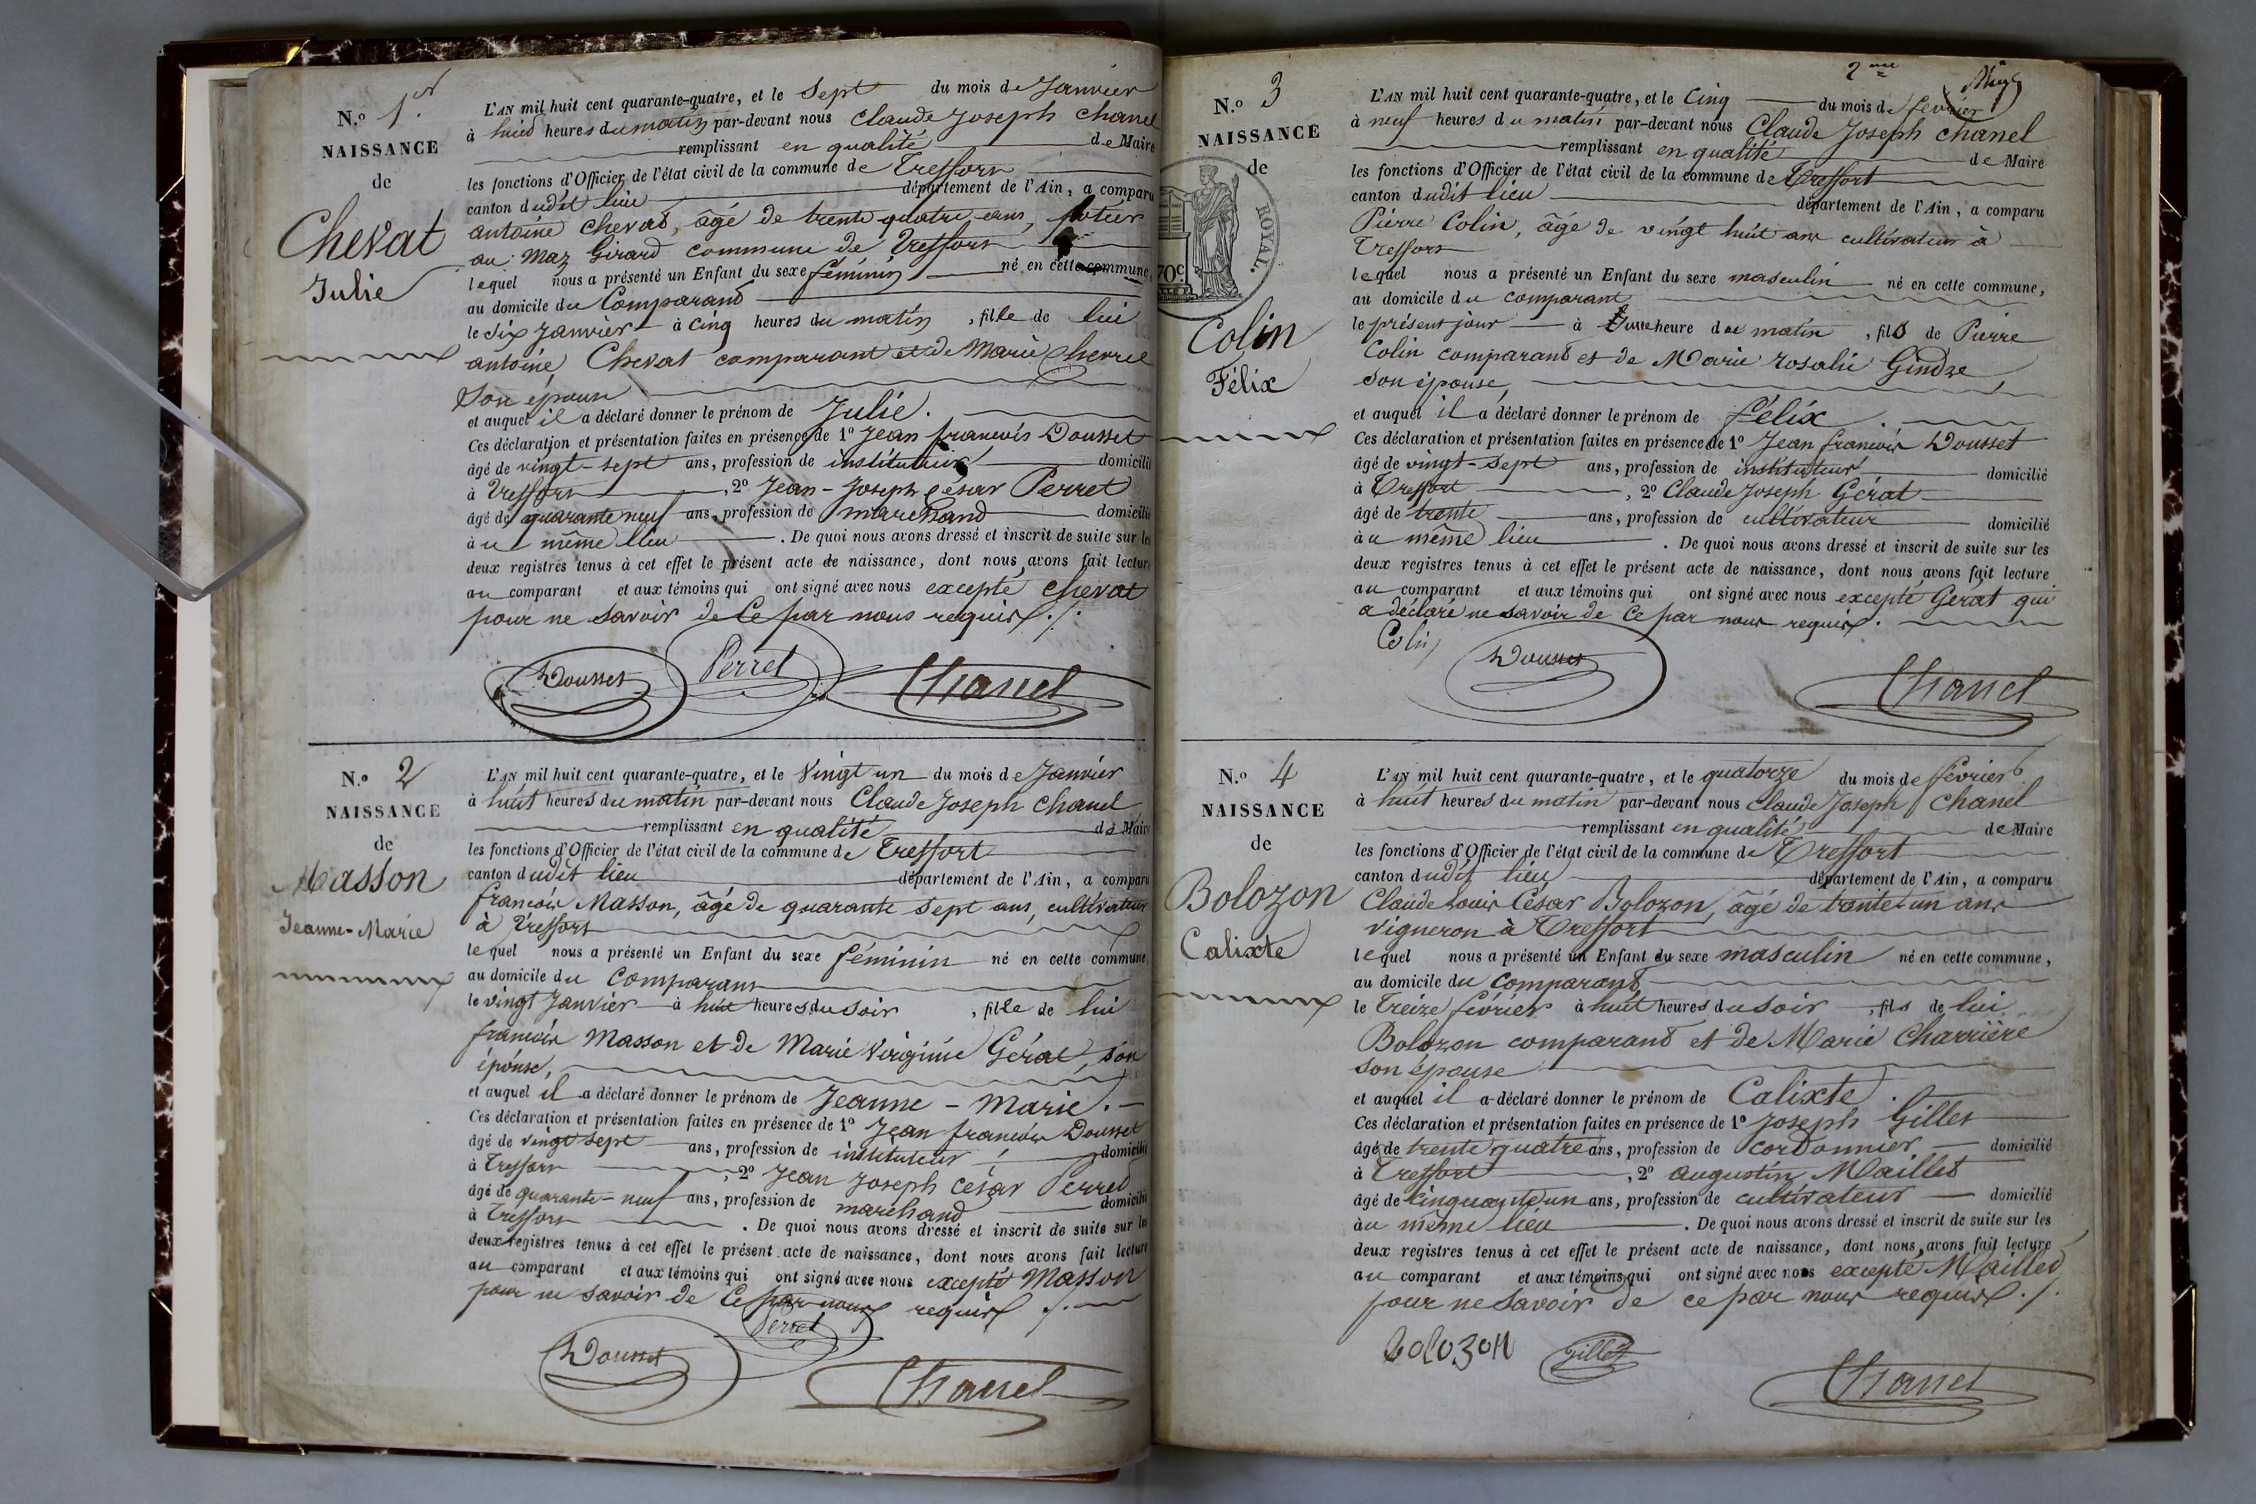 N.º 1er
NAISSANCE
de
Chevat
Julie
L'AN mil huit cent quarante-quatre, et le sept du mois de Janvier
à huit heures du matin par-devant nous Claude Joseph Chanel
remplissant en qualité de Maire
les fonctions d'Officier de l'état civil de la commune de Treffort
canton dudit lieu département de l'Ain, a comparu
antoine Chevat, âgé de trente quatre ans, potier
au Maz Girard commune de Treffort
lequel nous a présenté un Enfant du sexe féminin né en cette commune,
au domicile du Comparant
le six Janvier à cinq heures du matin, fille de lui
antoine Chevat comparant et de Marie Cherrel
Son épouse
et auquel il a déclaré donner le prénom de Julie.
Ces déclaration et présentation faites en présence de 1º Jean francois Dousset
âgé de vingt-sept ans, profession de instituteur domicilié
à Treffort, 2º Jean-Joseph César Perret
âgé de quarante neuf ans, profession de marchand domicilié
au même lieu. De quoi nous avons dressé et inscrit de suite sur les
deux registres tenus à cet effet le présent acte de naissance, dont nous avons fait lecture
au comparant et aux témoins qui ont signé avec nous excepté Chevat
pour ne savoir de Ce par nous requis ./.
Dousset Perret Chanel
N.º 2
NAISSANCE
de
Masson
Jeanne-Marie
L'AN mil huit cent quarante-quatre, et le Vingt un du mois de Janvier
à huit heures du matin par-devant nous Claude Joseph Chanel
remplissant en qualité de Maire
les fonctions d'Officier de l'état civil de la commune de Treffort
canton dudit lieu département de l'Ain, a comparu
françois Masson, âgé de quarante sept ans, cultivateur
à Treffort
lequel nous a présenté un Enfant du sexe féminin né en cette commune,
au domicile du Comparant
le vingt Janvier à huit heures du soir, fille de lui
francois Masson et de Marie Virginie Gérat, son
épouse,
et auquel il a déclaré donner le prénom de Jeanne-Marie.
Ces déclaration et présentation faites en présence de 1º Jean francois Dousset
âgé de vingt sept ans, profession de instituteur domicilié
à Treffort, 2º Jean Joseph César Perret
âgé de quarante-neuf ans, profession de marchand domicilié
à Treffort. De quoi nous avons dressé et inscrit de suite sur les
deux registres tenus à cet effet le présent acte de naissance, dont nous avons fait lecture
au comparant et aux témoins qui ont signé avec nous excepté Masson
pour ne savoir de Ce par nous requis ./.
Perret
Dousset Chanel
2me
N.º 3
NAISSANCE
de
ROYAL.
70c.
Colin
Félix
L'AN mil huit cent quarante-quatre, et le Cinq du mois de fevrier
à neuf heures du matin par-devant nous Claude Joseph Chanel
remplissant en qualité de Maire
les fonctions d'Officier de l'état civil de la commune de Treffort
canton dudit lieu département de l'Ain, a comparu
Pierre Colin, âgé de vingt huit ans cultivateur à
Treffort
lequel nous a présenté un Enfant du sexe masculin né en cette commune,
au domicile du comparant
le présent jour à heure du matin, fils de Pierre
Colin comparant et de Marie rosalie Gindre,
son épouse,
et auquel il a déclaré donner le prénom de félix.
Ces déclaration et présentation faites en présence de 1º Jean francois Dousset
âgé de vingt-sept ans, profession de instituteur domicilié
à Treffort, 2º Claude Joseph Gérat
âgé de trente ans, profession de cultivateur domicilié
au même lieu. De quoi nous avons dressé et inscrit de suite sur les
deux registres tenus à cet effet le présent acte de naissance, dont nous avons fait lecture
au comparant et aux témoins qui ont signé avec nous excepté Gérat qui
a déclaré ne savoir de Ce par nous requis.
Colin Dousset Chanel
N.º 4
NAISSANCE
de
Bolozon
Calixte
L'AN mil huit cent quarante-quatre, et le quatorze du mois de février
à huit heures du matin par-devant nous Claude Joseph Chanel
remplissant en qualité de Maire
les fonctions d'Officier de l'état civil de la commune de Treffort
canton dudit lieu département de l'Ain, a comparu
Claude Louis César Bolozon, âgé de trente un ans
Vigneron à Treffort
lequel nous a présenté un Enfant du sexe masculin né en cette commune,
au domicile du Comparant
le Treize février à huit heures du soir, fils de lui
Bolozon comparant et de Marie Charrière
son épouse
et auquel il a déclaré donner le prénom de Calixte.
Ces déclaration et présentation faites en présence de 1º Joseph Gillet
âgé de trente quatre ans, profession de cordonnier domicilié
à Treffort, 2º augustin Maillet
âgé de cinquante un ans, profession de cultivateur domicilié
au même lieu. De quoi nous avons dressé et inscrit de suite sur les
deux registres tenus à cet effet le présent acte de naissance, dont nous avons fait lecture
au comparant et aux témoins qui ont signé avec nous excepté Maillet
pour ne savoir de ce par nous requis ./.
bolozon Gillet Chanel